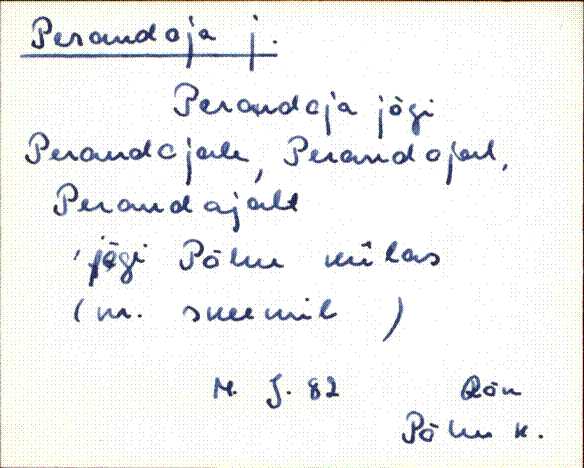 Perandoja j.
Perandoja jõgi
Perandojale, Perandojal,
Perandojalt
'jõgi Põlnu külas
(nr. skeemil )
M. J. 82 Rõu
Põlnu k.